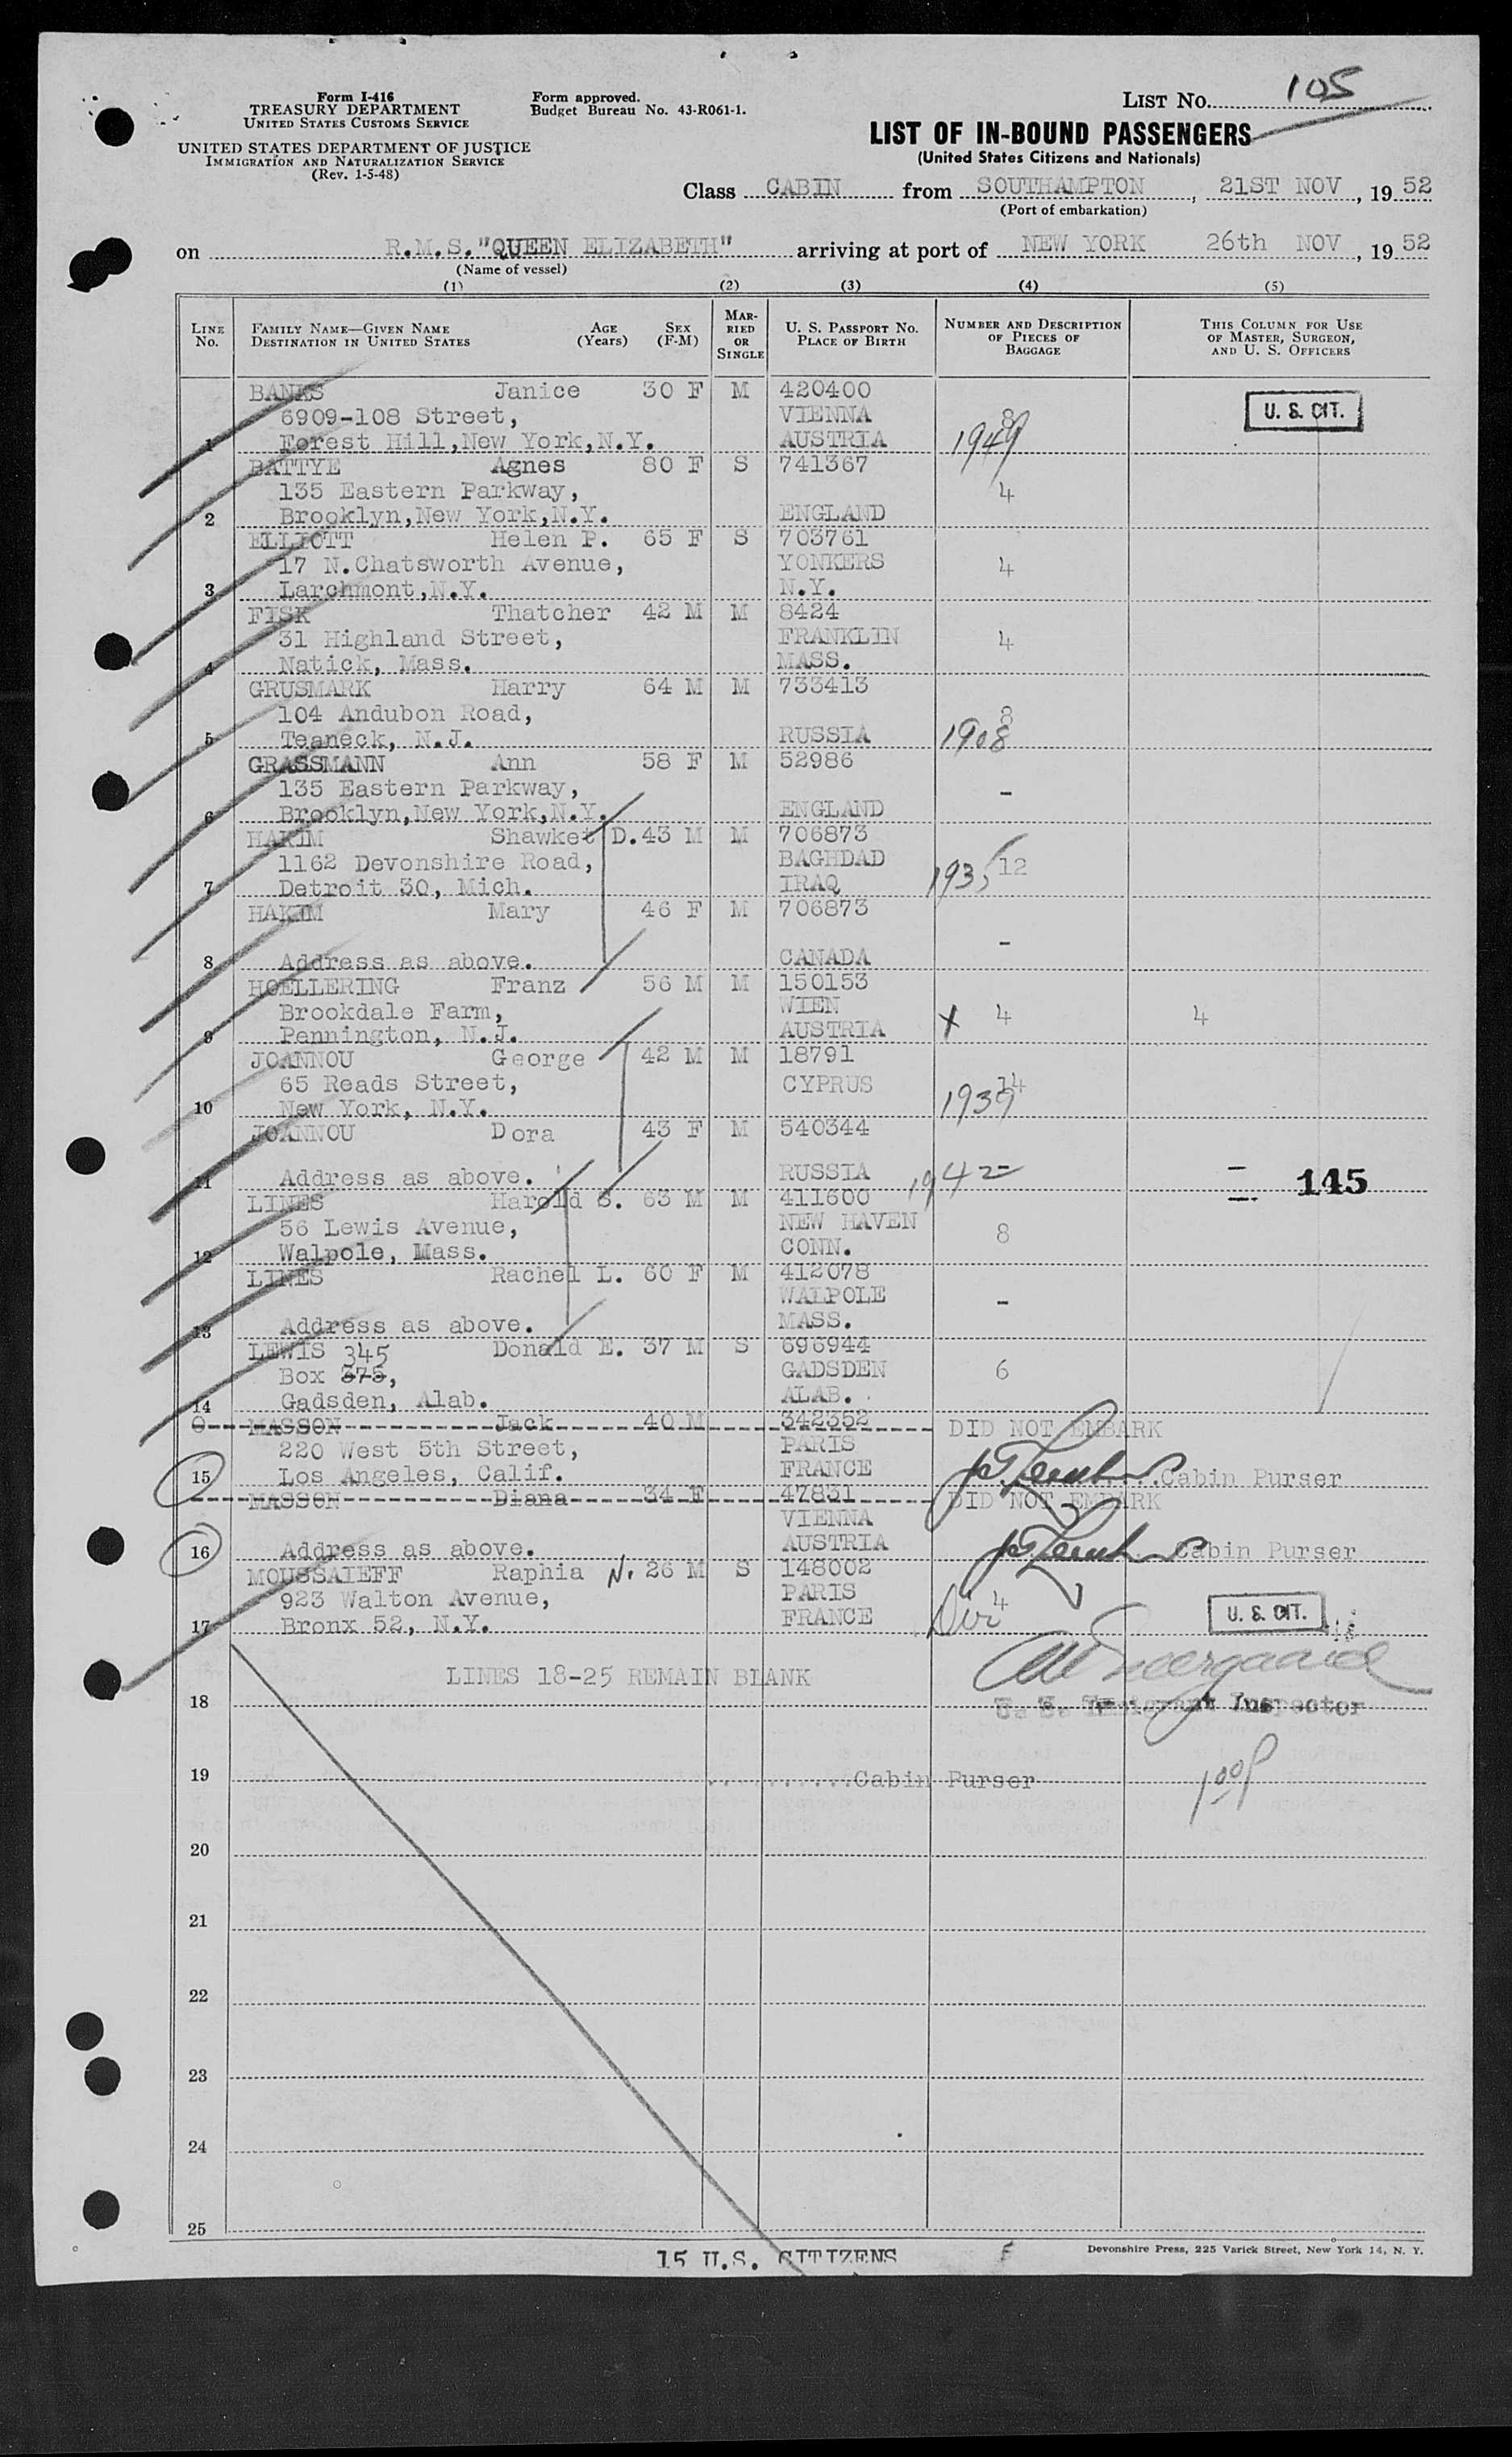 Form I-416
TREASURY DEPARTMENT
UNITED STATES CUSTOMS SERVICE
UNITED STATES DEPARTMENT OF JUSTICE
IMMIGRATION AND NATURALIZATION SERVICE
(Rev. 1-5-48)
Form approved.
Budget Bureau No. 43-R061-1.
LIST NO. 105
LIST OF IN-BOUND PASSENGERS
(United States Citizens and Nationals)
Class CABIN from SOUTHAMPTON, 21ST NOV, 19 52
(Port of embarkation)
on R.M.S."QUEEN ELIZABETH" arriving at port of NEW YORK 26th NOV, 19 52
(Name of vessel)
(1) (2) (3) (4) (5)
LINE NO. FAMILY NAME—GIVEN NAME DESTINATION IN UNITED STATES AGE (Years) SEX (F-M) MARRIED OR SINGLE U. S. PASSPORT NO. PLACE OF BIRTH NUMBER AND DESCRIPTION OF PIECES OF BAGGAGE THIS COLUMN FOR USE OF MASTER, SURGEON, AND U. S. OFFICERS
BANKS Janice 30 F M 420400
6909-108 Street, VIENNA 8 U. S. CIT.
1 Forest Hill,New York,N.Y. AUSTRIA 1949
BATTYE Agnes 80 F S 741367
135 Eastern Parkway, 4
2 Brooklyn,New York,N.Y. ENGLAND
ELLIOTT Helen P. 65 F S 703761
17 N.Chatsworth Avenue, YONKERS 4
3 Larchmont,N.Y. N.Y.
FISK Thatcher 42 M M 8424
31 Highland Street, FRANKLIN 4
4 Natick, Mass. MASS.
GRUSMARK Harry 64 M M 733413
104 Andubon Road, 8
5 Teaneck, N.J. RUSSIA 1908
GRASSMANN Ann 58 F M 52986
135 Eastern Parkway, -
6 Brooklyn,New York,N.Y. ENGLAND
HAKIM Shawket D. 43 M M 706873
1162 Devonshire Road, BAGHDAD 12
7 Detroit 30, Mich. IRAQ 1935
HAKIM Mary 46 F M 706873
-
8 Address as above. CANADA
HOELLERING Franz 56 M M 150153
Brookdale Farm, WIEN X 4 4
9 Pennington, N.J. AUSTRIA
JOANNOU George 42 M M 18791
65 Reads Street, CYPRUS 14
10 New York, N.Y. 1939
JOANNOU Dora 43 F M 540344
11 Address as above. RUSSIA 1942 - 145
LINES Harold S. 63 M M 411600
56 Lewis Avenue, NEW HAVEN 8
12 Walpole, Mass. CONN.
LINES Rachel L. 60 F M 412078
WALPOLE -
13 Address as above. MASS.
LEWIS Donald E. 37 M S 696944
345
Box 375, GADSDEN 6
14 Gadsden, Alab. ALAB.
0 MASSON Jack 40 M 342352 DID NOT EMBARK
220 West 5th Street, PARIS
15 Los Angeles, Calif. FRANCE Cabin Purser
MASSON Diana 34 F 47831 DID NOT EMBARK
VIENNA
16 Address as above. AUSTRIA Cabin Purser
MOUSSAIEFF Raphia N. 26 M S 148002
923 Walton Avenue, PARIS 4
17 Bronx 52, N.Y. FRANCE U. S. CIT.
LINES 18-25 REMAIN BLANK
18 U. S. Immigrant Inspector
19 Cabin Purser
20
21
22
23
24
25
15 U.S. CITIZENS
Devonshire Press, 225 Varick Street, New York 14, N. Y.